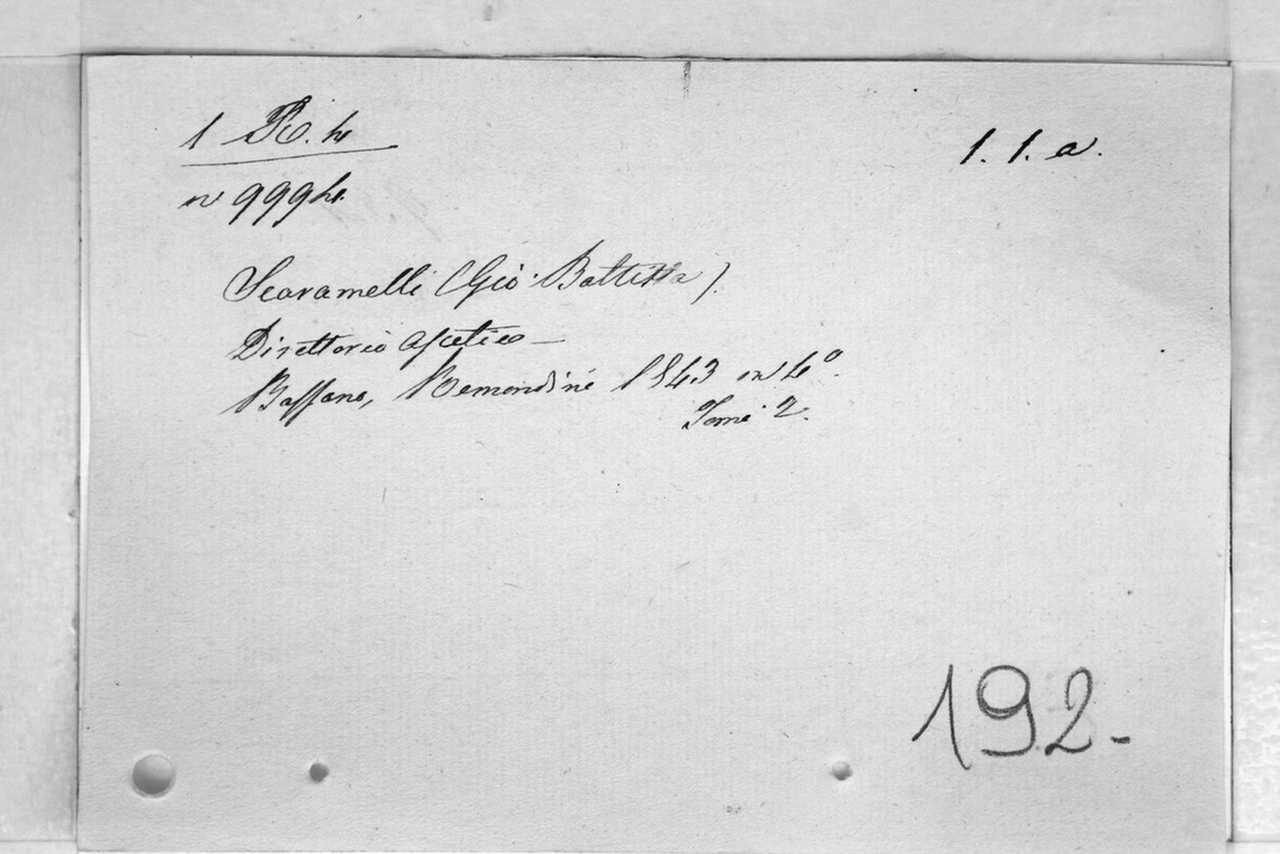 1 R. 4
n 9994.
1. 1. a.
Scaramelli (Gio: Battista).
Direttorio Ascetico —
Bassano, Remondini 1843 in 4º.
Tomi 2.
192-